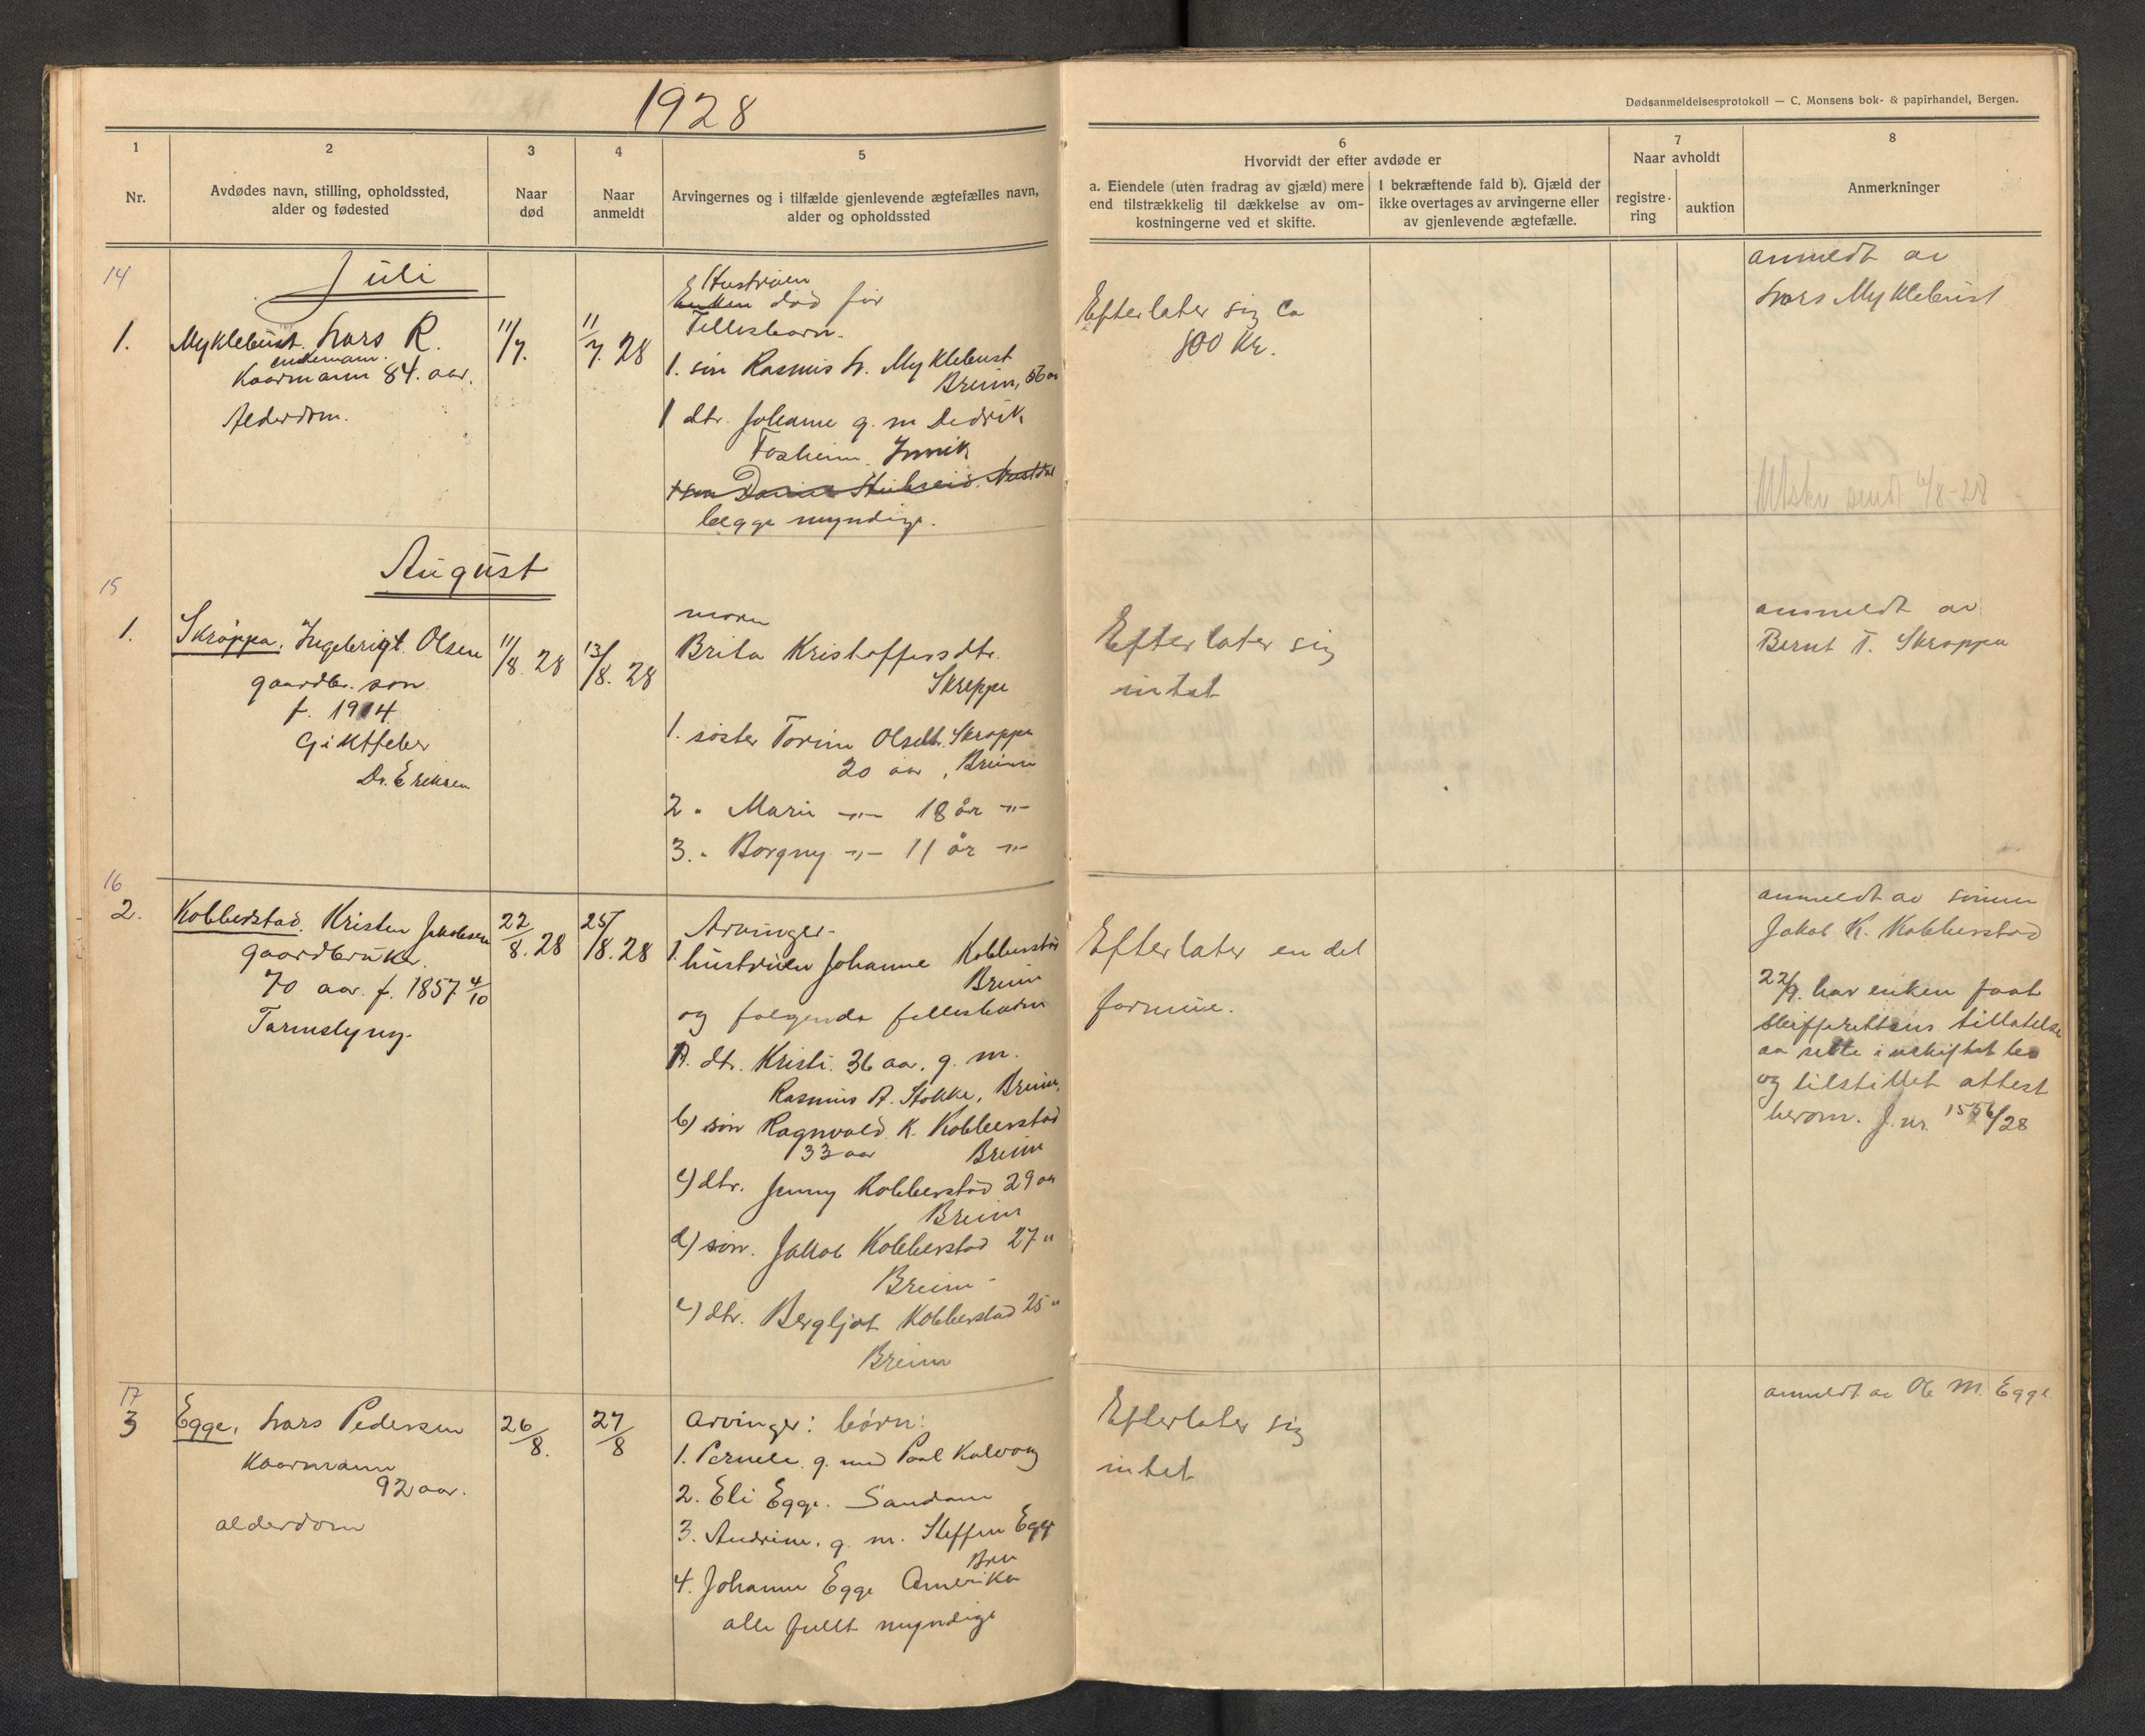 1928
Dødsanmeldelsesprotokoll — C. Monsens bok- & papirhandel, Bergen.
1
Nr.
2
Avdødes navn, stilling, opholdssted,
alder og fødested
3
Naar
død
4
Naar
anmeldt
5
Arvingernes og i tilfælde gjenlevende ægtefælles navn,
alder og opholdssted
6
Hvorvidt der efter avdøde er
a. Eiendele (uten fradrag av gjæld) mere
end tilstrækkelig til dækkelse av om-
kostningerne ved et skifte.
I bekræftende fald b). Gjæld der
ikke overtages av arvingerne eller
av gjenlevende ægtefælle.
7
Naar avholdt
registre-
ring
auktion
8
Anmerkninger
Juli
14
1.
Myklebust. Lars R.
enkemann.
Kaarmann 84. aar.
Alderdom.
11/7.
11/7. 28
Hustruen
Enken død før
Fellesbarn.
1. søn Rasmus L. Myklebust
Breim, 56 aa
1 dtr. Johanne g. m Dedrik
Fosheim. Innvik
begge myndige.
Efterlater sig ca
800 Kr.
anmeldt av
Lars Myklebust
Utskr sendt 6/8-28
August
15
1.
Skrøppa, Ingebrigt Olsen
gaardbr. søn
f. 1914
Giktfeber
Dr. Eriksen
11/8. 28
13/8. 28
moren
Brita Kristoffersdtr.
Skreppe
1. søster Torine Olsdtr. Skroppa
20 aar, Breim
2 " Marie -"- 18 år -"-
3. " Borgny -"- 11 år -"-
Efterlater sig
intet
anmeldt av
Bernt T. Skroppa
16
2.
Kobberstad. Kristen Jakobsen
gaardbruker.
70 aar. f. 1857 4/10
Tarmslyng.
22/8. 28
25/8. 28
Arvinger.
1. hustruen Johanne Kobberstad
Breim
og følgende fellesbarn
A. dtr. Kristi. 36 aa. g. m.
Rasmus A. Stokke, Breim.
b) søn Ragnvald K. Kobberstad
33 aar Breim
c) dtr. Jenny Kobberstad 29 aa
Breim
d) søn. Jakob Kobberstad 27 "
Breim
e) dtr. Bergljot Kobberstad 25 "
Breim
Efterlater en del
formue.
anmeldt av sønnen
Jakob K. Kobberstad
22/9. har enken faat
skifterettens tillatelse
aa sitte i uskiftet bo
og tilstillet attest
herom. J. nr. 1556/28
17
3
Egge, Lars Pedersen
Kaarmann
92 aar.
alderdom
26/8.
27/8
Arvinger: børn:
1. Pernele g. med Paul Kalvaag
2. Eli Egge. Sandane
3. Andrine. g. m. Steffen Egge
Bre
4. Johanne Egge Amerika
alle fullt myndige
Efterlater sig
intet
anmeldt av Ole M. Egge